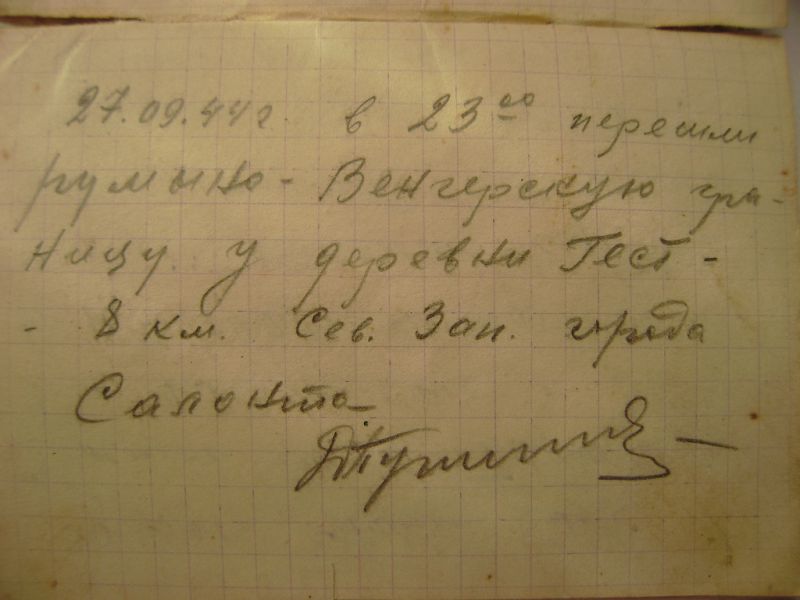 27.09.44 г. в 23⁰⁰ перешли
румыно- Венгерскую гра-
ницу у деревни Гест -
- 8 км. Сев. Зап. города
Салонта